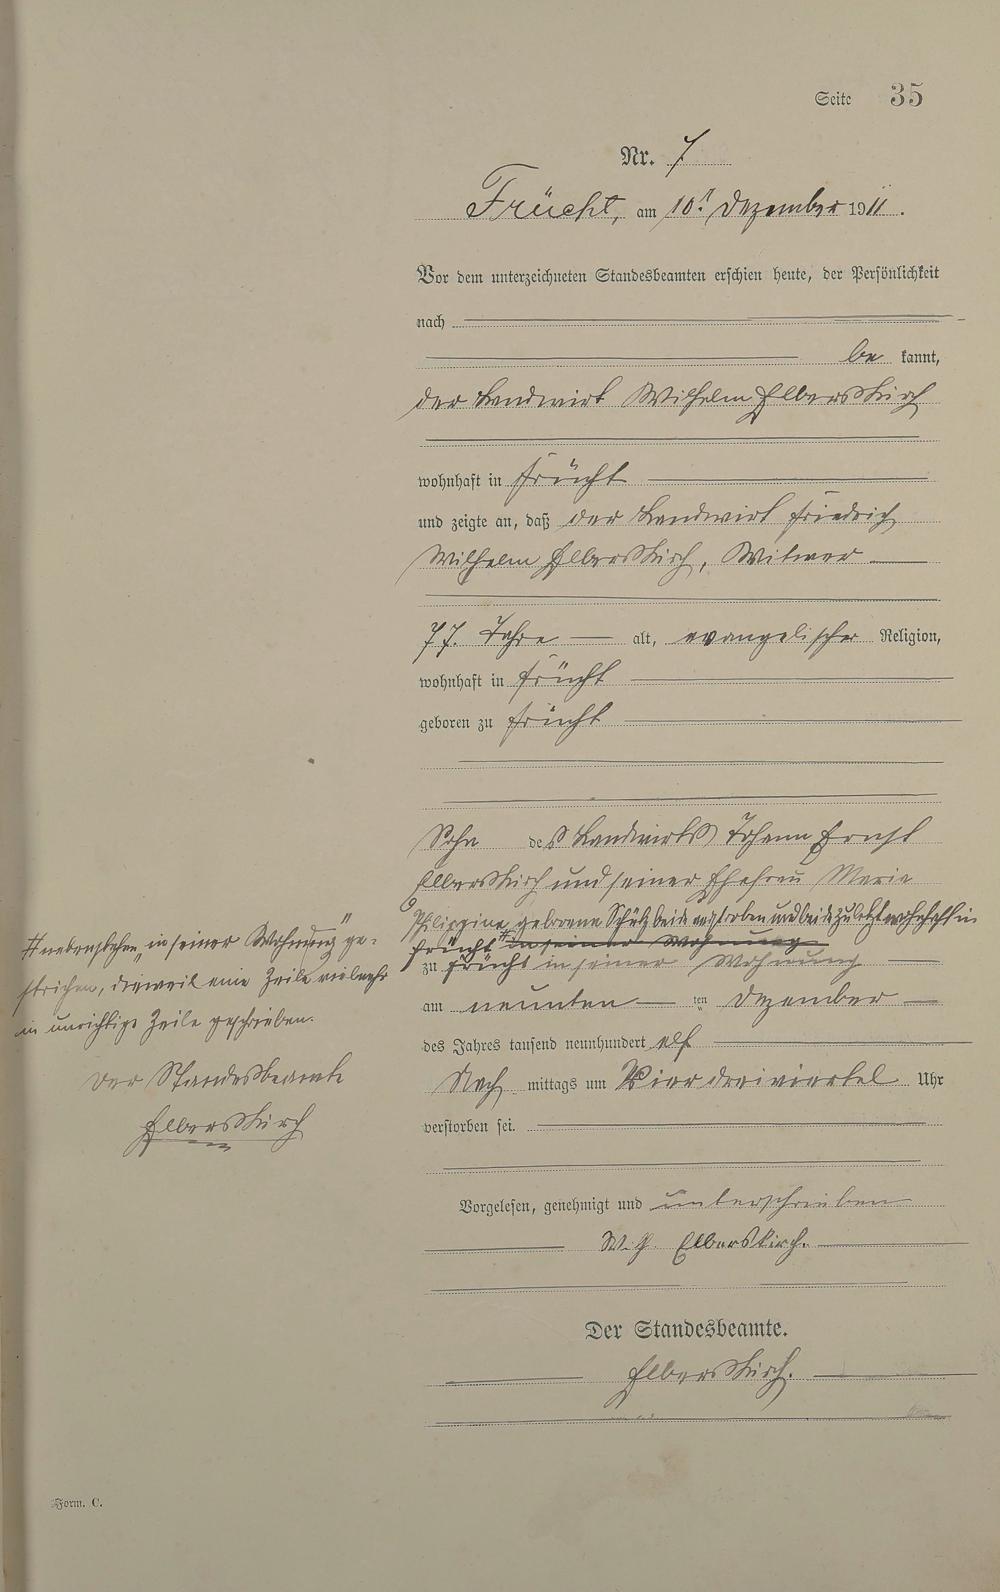 Seite 35
Nr. 7
Frücht, am 10ⁿ Dezember 1911.
Vor dem unterzeichneten Standesbeamten erschien heute, der Persönlichkeit
nach
be kannt,
der Landwirt Wilhelm Elberskirch
wohnhaft in Frücht
und zeigte an, daß der Landwirt Friedrich
Wilhelm Elberskirch, Witwer
77 Jahre alt, evangelischer Religion,
wohnhaft in Frücht
geboren zu Frücht
Sohn des Landwirts Johann Ernst
Elberskirch und seiner Ehefrau Maria
Philippine geborene Schütz beide verstorben und beide zuletzt wohnhaft in
Frücht # in seiner Wohnung
zu Frücht in seiner Wohnung
am neunten ten Dezember
des Jahres tausend neunhundert elf
Nach mittags um Vier dreiviertel Uhr
verstorben sei.
Vorgelesen, genehmigt und unterschrieben
W. P. Elberskirch.
Der Standesbeamte.
Elberskirch.
# nebenstehen „in seiner Wohnung" ge-
strichen, dieweil eine Zeile vielmehr
in unrichtige Zeile geschrieben.
Der Standesbeamte
Elberskirch
Form. C.